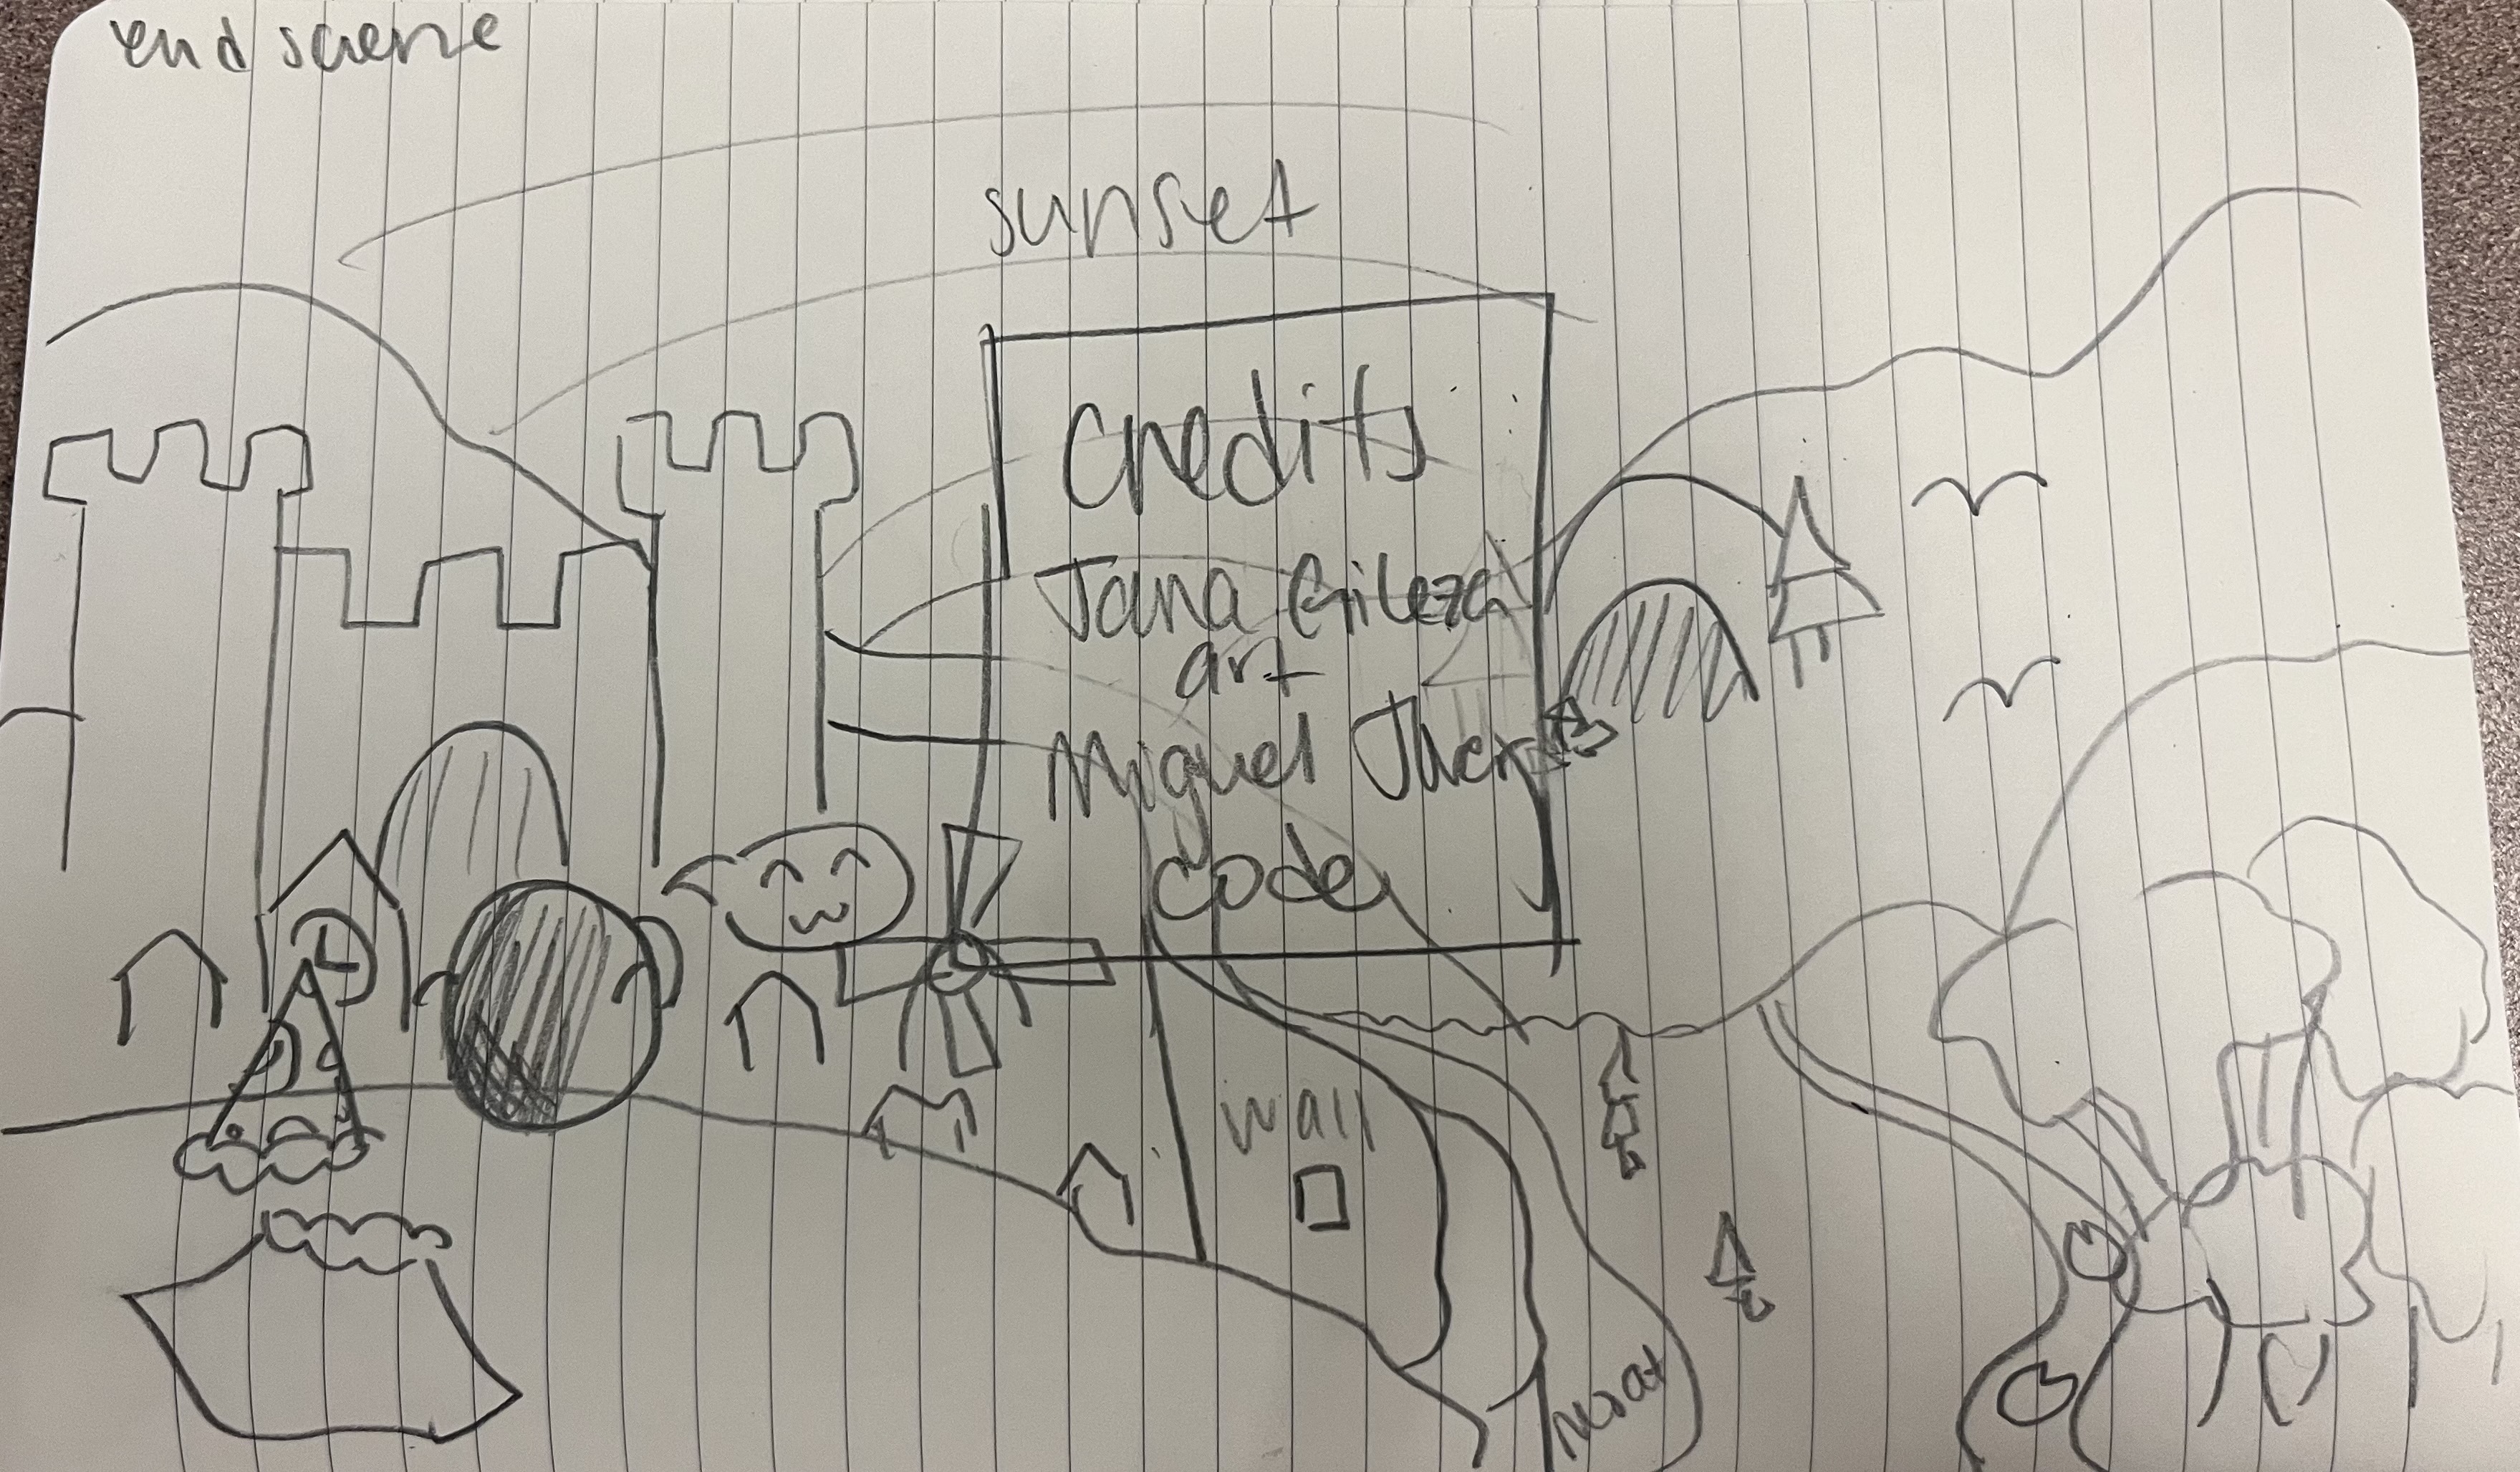 end scene
sunset
credits
Jana
art
Miguel
code
wall
moat